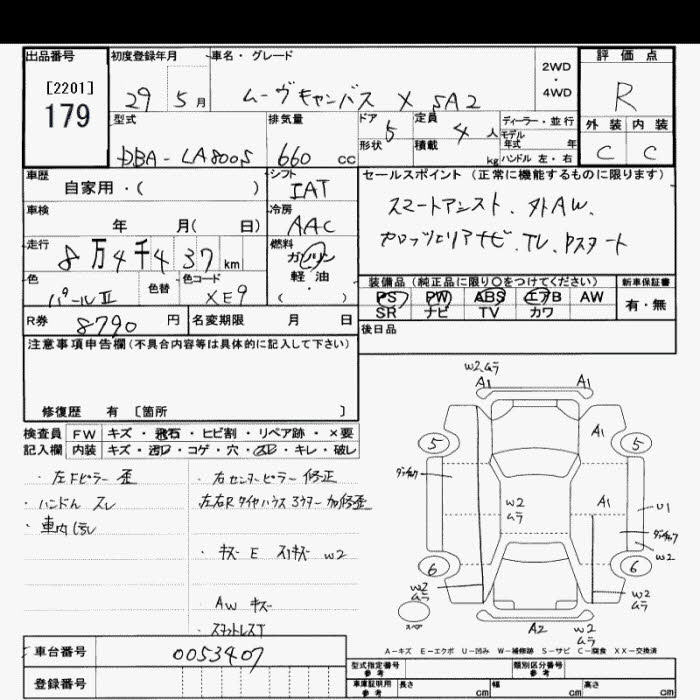 出品番号
[2201]
179
初度登録年月
29 5 月
車名・グレード
ムーヴキャンバス X SA2
2WD
・
4WD
評価点
R
外装 内装
C C
型式
DBA-LA800S
排気量
660 cc
ドア 5
形状
定員 4 人
積載 kg
ディーラー・並行
モデル
年式 年
ハンドル 左・右
車歴
自家用・( )
シフト
IAT
車検
年 月( 日)
冷房
AAC
走行
8万4千437 km
燃料
ガソリン
軽・油
( )
色
パールII
色替
色コード
XE9
R券 8790 円
名変期限 月 日
セールスポイント(正常に機能するものに限ります)
スマートアシスト、外AW、
カロッツェリアナビ、TV、Pスタート
装備品(純正品に限り○をつけてください)
PS PW ABS エアB AW
SR ナビ TV カワ
新車保証書
有・無
後日品
注意事項申告欄(不具合内容等は具体的に記入して下さい)
修復歴 有 〔箇所 〕
検査員 FW キズ・飛石・ヒビ割・リペア跡・×要
記入欄 内装 キズ・汚レ・コゲ・穴・ ・キレ・破レ
・左Fピラー 歪
・ハンドル スレ
・車内汚レ
・右センターピラー 修正
左右Rタイヤハウス 加修歪
・キズ E スリキズ W2
AW キズ
・スタットレスT
W2ムラ
A1 A1
5 5
A1
W2
ムラ
A1
U1
W2
6 6
W2
ムラ
W2
ムラ
スペア
A2 W2
ムラ
A-キズ E-エクボ U-凹み W-補修跡 S-サビ C-腐食 XX-交換済
車台番号 0053407
登録番号
型式指定番号
参考
類別区分番号
参考
車庫証明用
参考
長さ cm 幅 cm 高さ cm